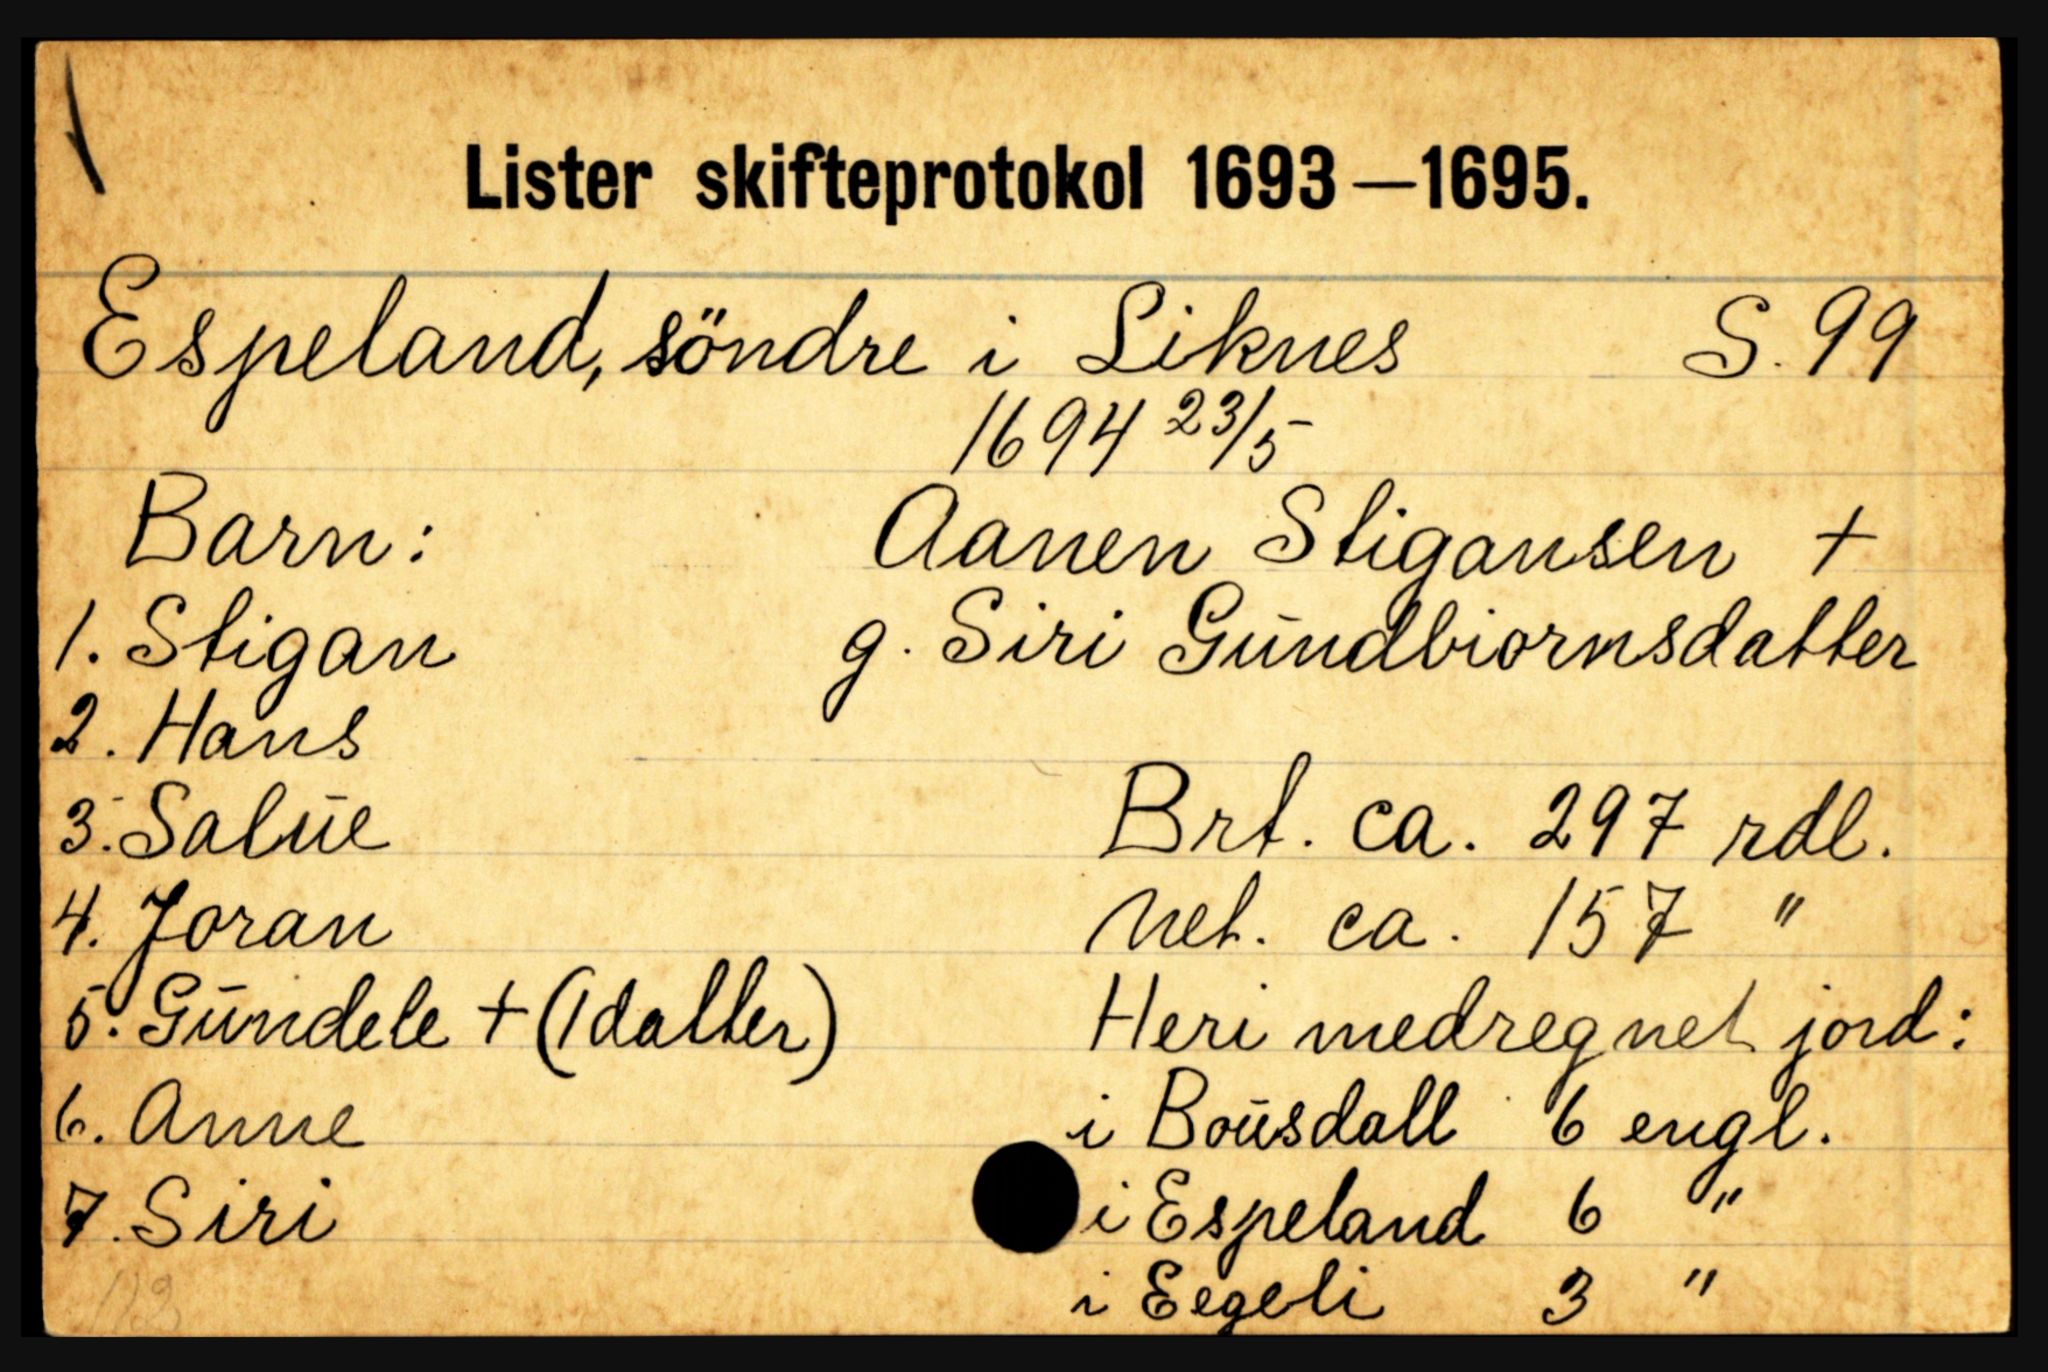 Lister skifteprotokol 1693—1695.
Espeland, söndre i Liknes S. 99
1694 23/5
Barn: Aanen Stigansen +
1. Stigan g. Siri Gūndbiornsdatter
2. Hans
3. Salūe Brt. ca. 297 rdl.
4. Joran Net. ca. 157 "
5. Gūndele + (1 datter) Heri medregnet jord:
6. Anne i Boūsdall 6 engl.
7. Siri i Espeland 6 "
i Eegeli 3 "
112